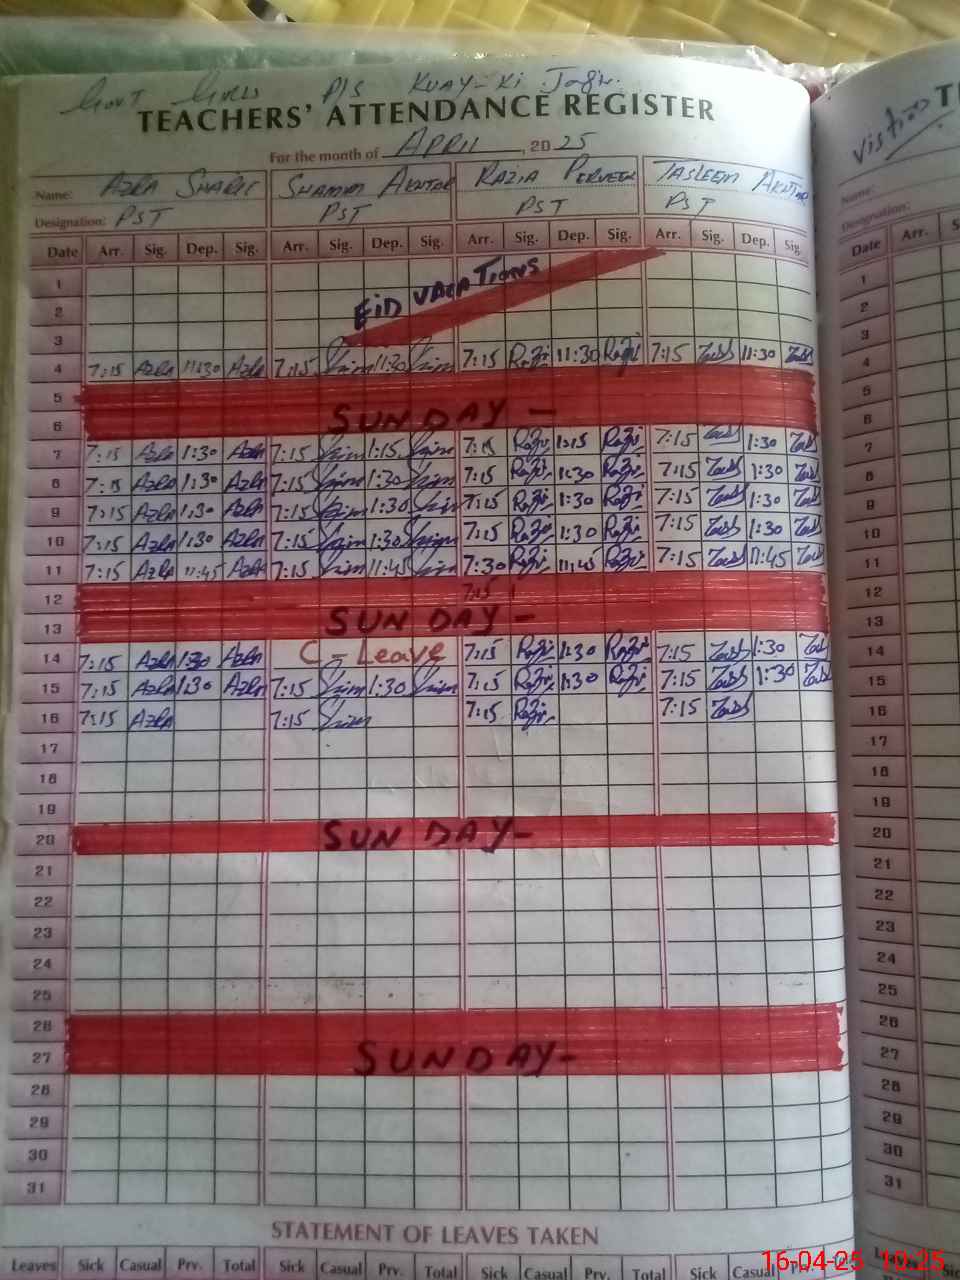 GOVT GIRLS P/S KUAY-KI
TEACHERS' ATTENDANCE REGISTER
For the month of APRIL, 2025
Name: AZRA SHARIF SHAMIM AKHTAR RAZIA PERVEEN TASLEEM AKHTAR
Designation: PST PST PST PST
Date Arr. Sig. Dep. Sig. Arr. Sig. Dep. Sig. Arr. Sig. Dep. Sig. Arr. Sig. Dep. Sig.
1
2 EID VACATIONS
3
4 7:15 Azra 11:30 Azra 7:15 11:30 7:15 Razi 11:30 Razi 7:15 11:30
5
6 SUNDAY -
7 7:15 Azra 1:30 Azra 7:15 1:15 7:15 Razi 1:15 Razi 7:15 1:30
8 7:15 Azra 1:30 Azra 7:15 1:30 7:15 Razi 1:30 Razi 7:15 1:30
9 7:15 Azra 1:30 Azra 7:15 1:30 7:15 Razi 1:30 Razi 7:15 1:30
10 7:15 Azra 1:30 Azra 7:15 1:30 7:15 Razi 1:30 Razi 7:15 1:30
11 7:15 Azra 11:45 Azra 7:15 11:45 7:30 Razi 11:45 Razi 7:15 11:45
12 7:15
13 SUNDAY -
14 7:15 Azra 1:30 Azra C - Leave 7:15 Razi 1:30 Razi 7:15 1:30
15 7:15 Azra 1:30 Azra 7:15 1:30 7:15 Razi 1:30 Razi 7:15 1:30
16 7:15 Azra 7:15 7:15 Razi 7:15
17
18
19
20 SUNDAY-
21
22
23
24
25
26
27 SUNDAY-
28
29
30
31
STATEMENT OF LEAVES TAKEN
Leaves Sick Casual Prv. Total Sick Casual Prv. Total Sick Casual Prv. Total Sick Casual Prv.
Name:
Designation:
Date Arr.
1
2
3
4
5
6
7
8
9
10
11
12
13
14
15
16
17
18
19
20
21
22
23
24
25
26
27
28
29
30
31
16-04-25 10:25